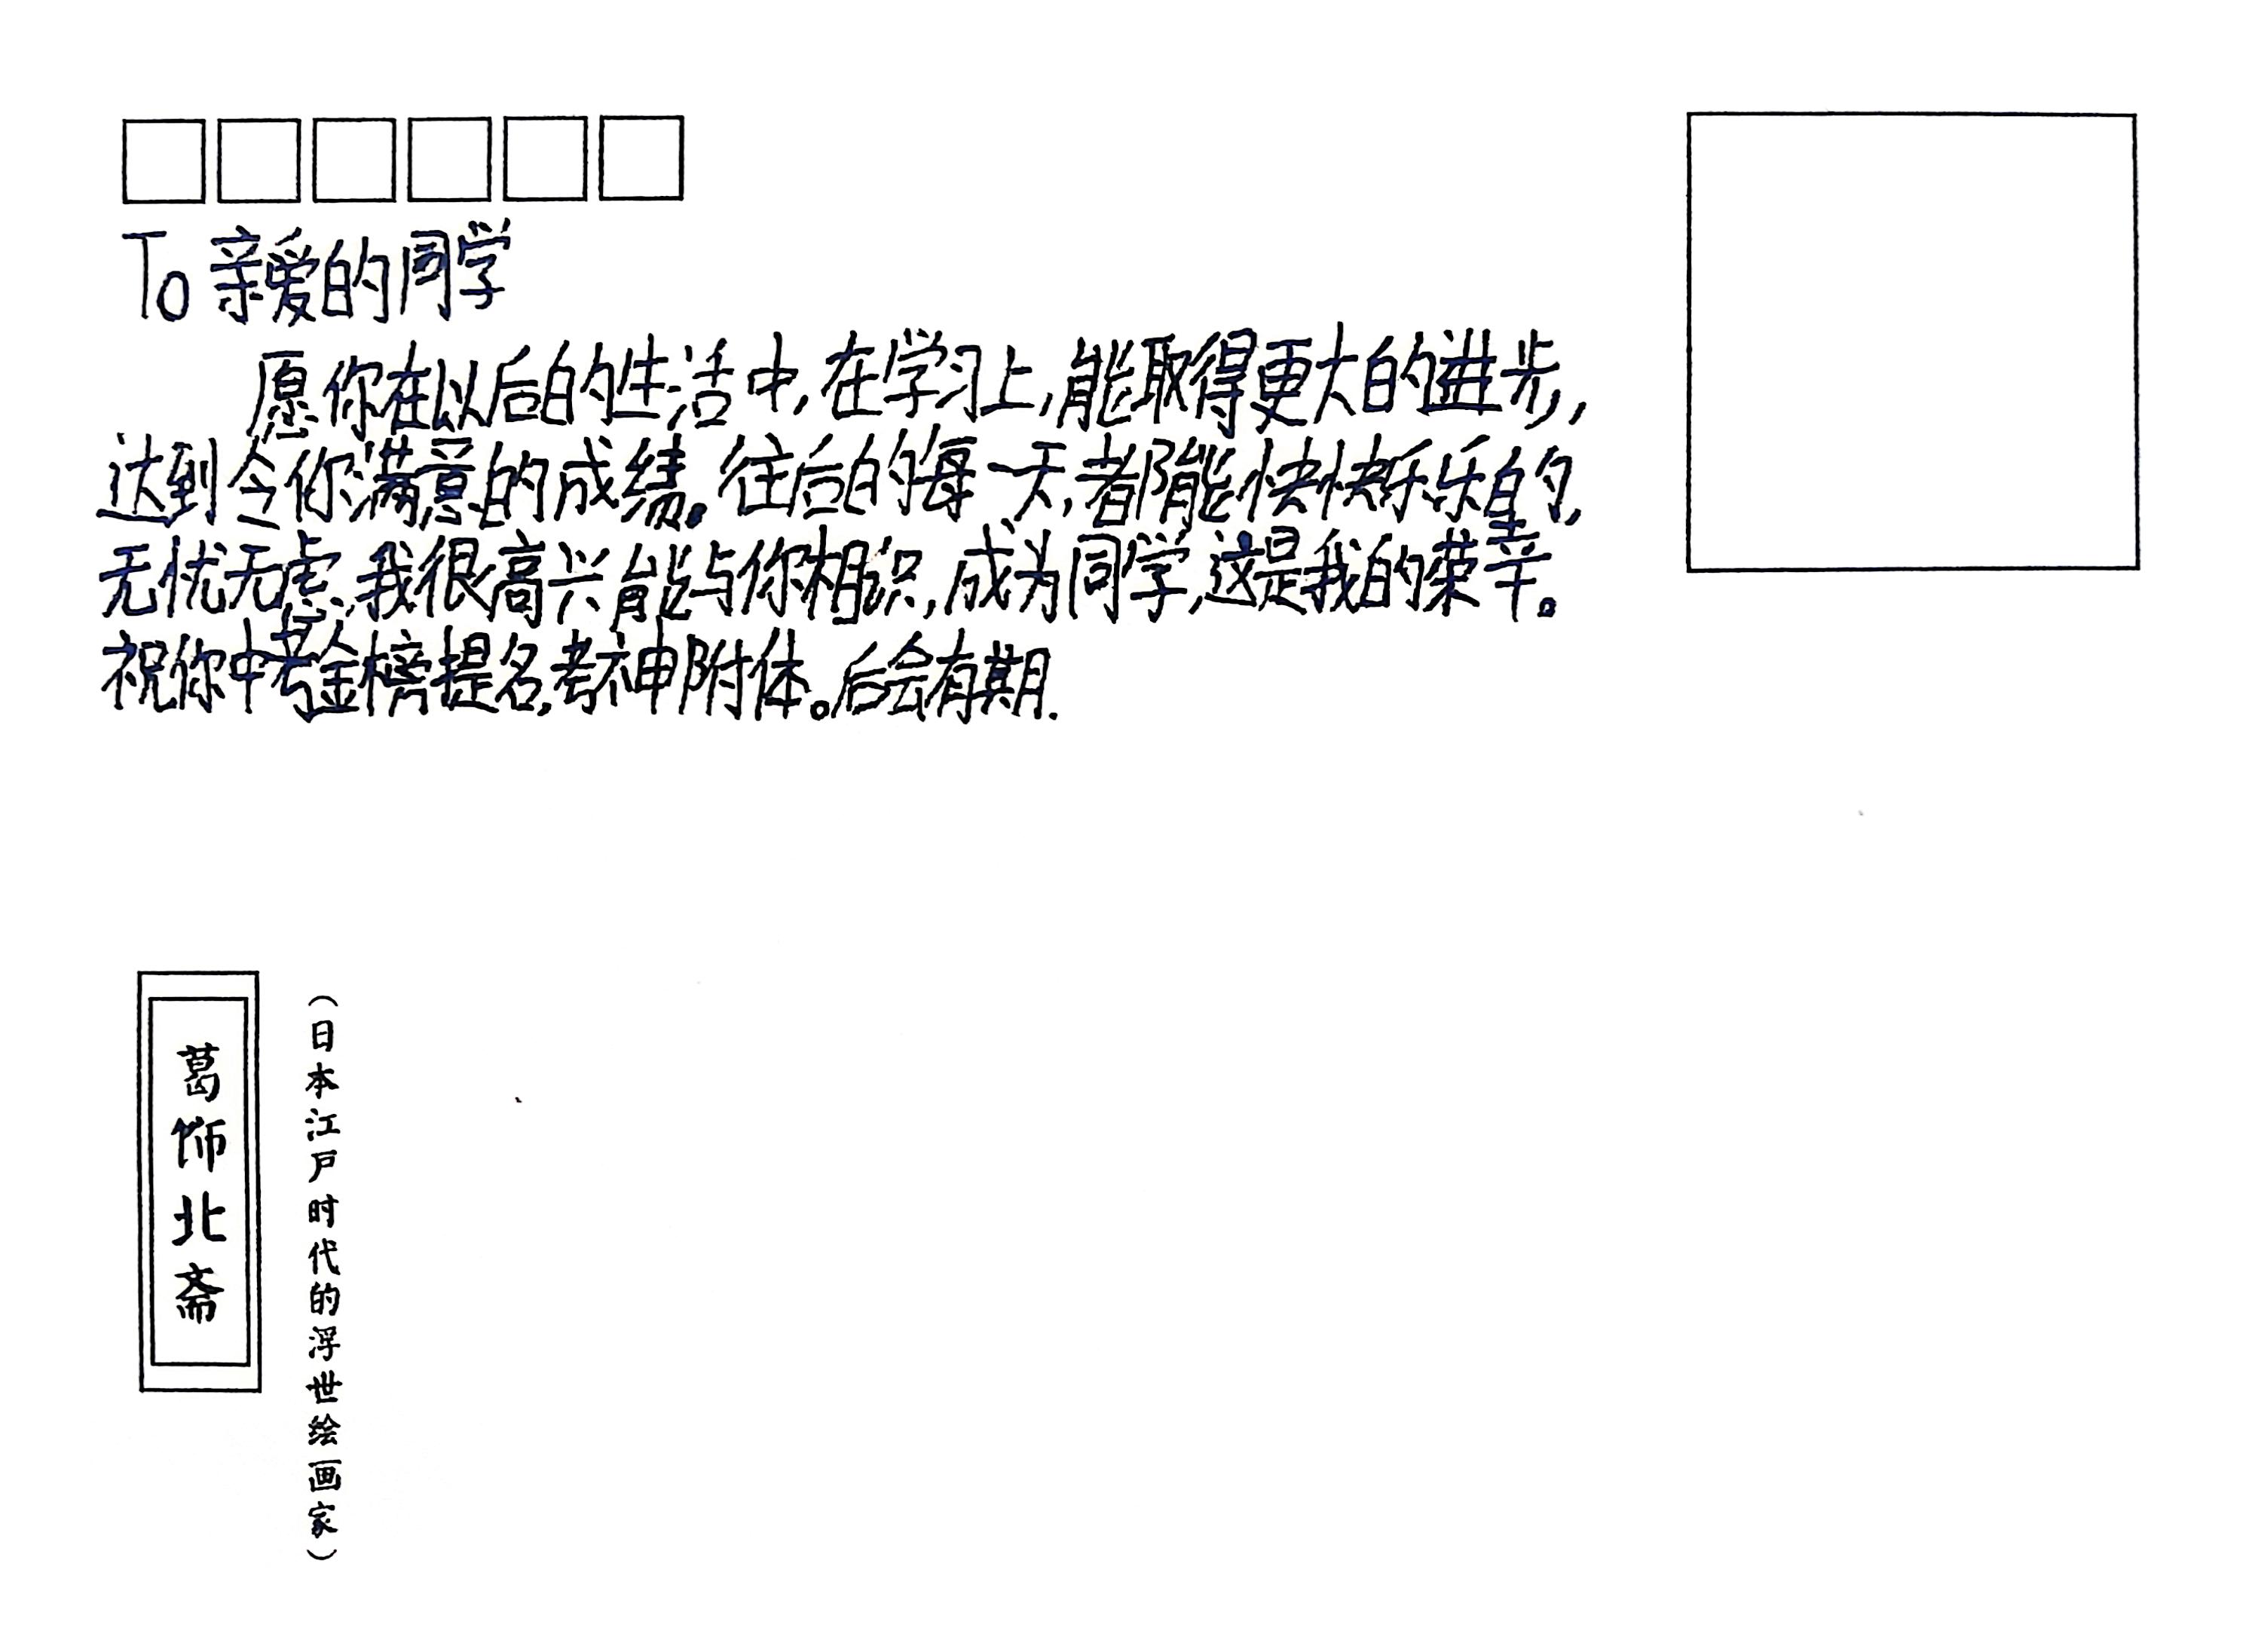 To 亲爱的同学
愿你在以后的生活中,在学习上,能取得更大的进步,
达到令你满意的成绩。往后的每一天,都能快快乐乐的,
无忧无虑,我很高兴能与你相识,成为同学,这是我的荣幸。
祝你中考金榜提名,考神附体。后会有期.
葛饰北斋
(日本江户时代的浮世绘画家)